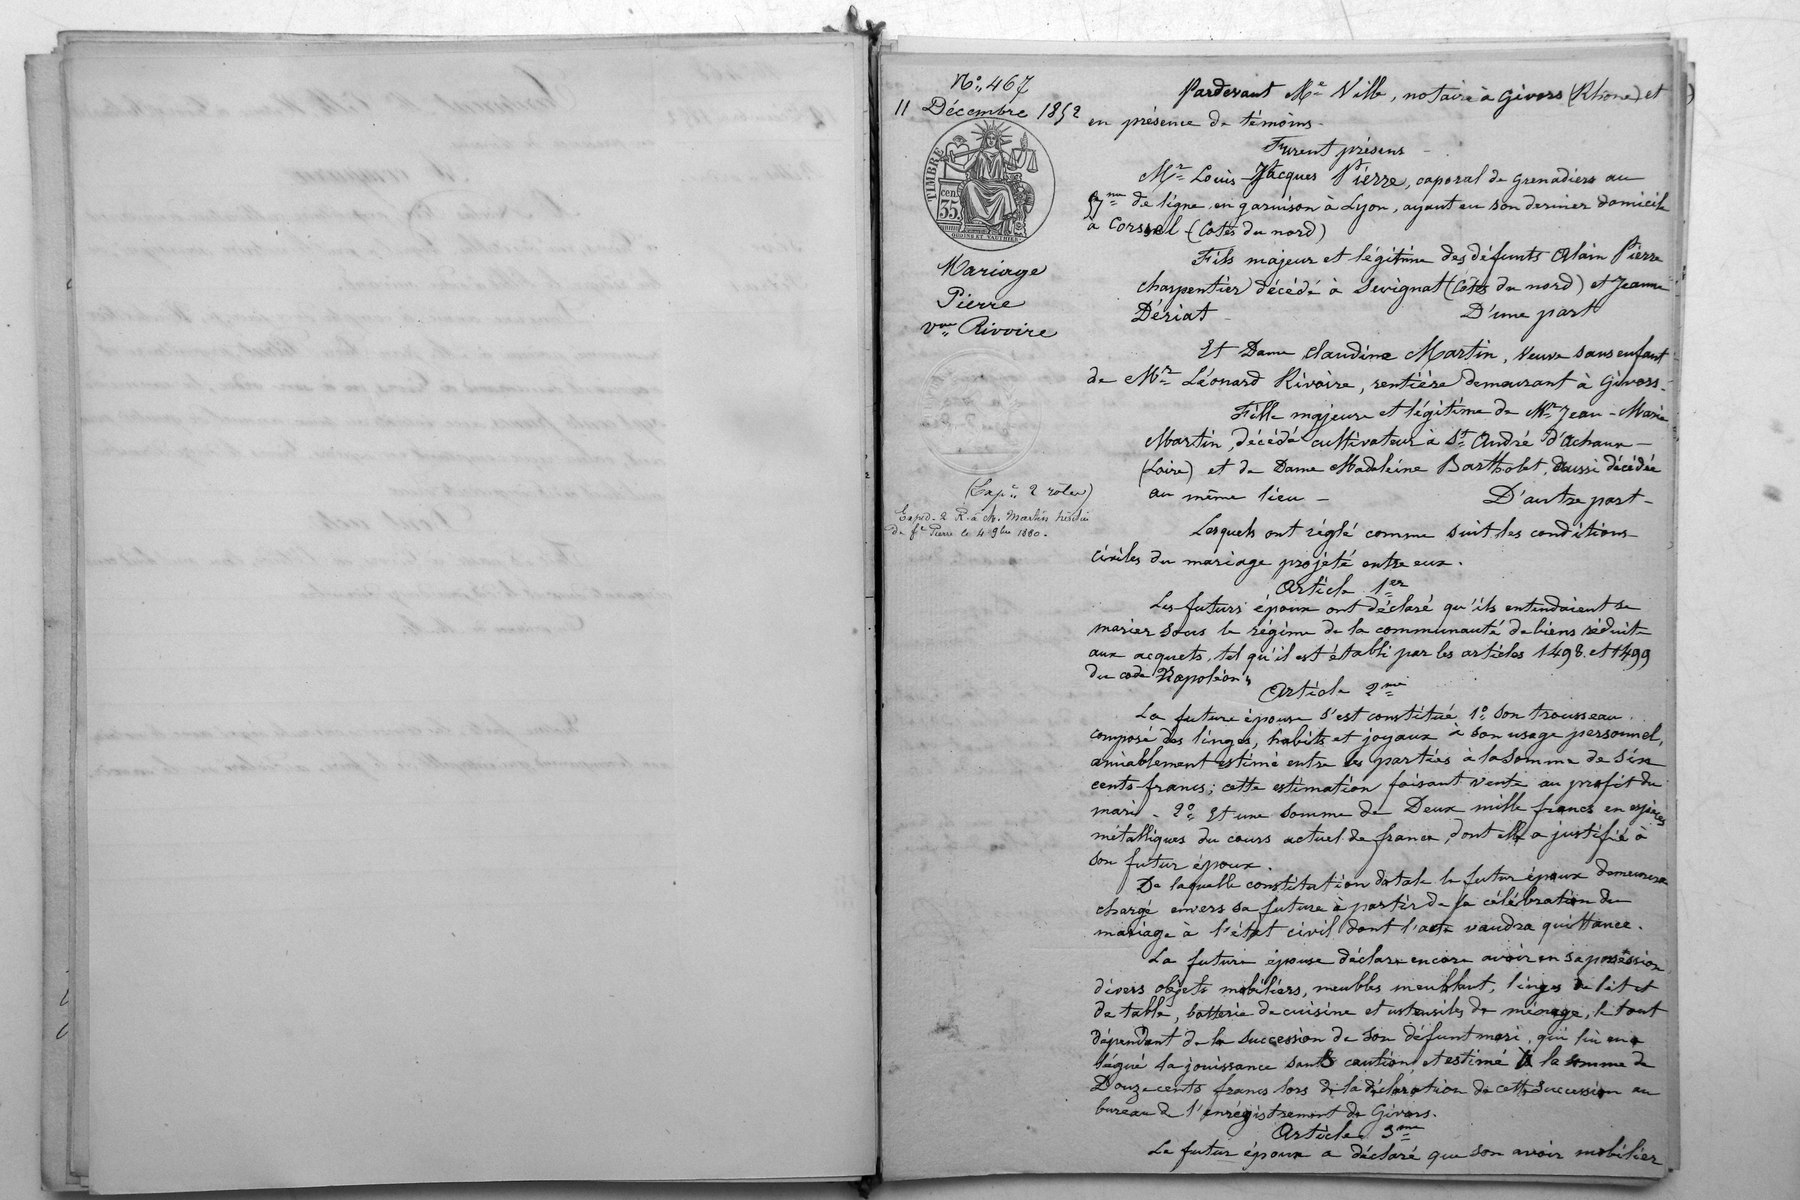 N° 467
11 Décembre 1852
TIMBRE
35 cen.
OUDINE ET VAUTHIER
Mariage
Pierre
vve Rivoire
(Exp.on 2 rôles)
Expd. 2 R. à M. Martin héritier
de fe Pierre le 4 9bre 1880.
Pardevant Me Ville, notaire à Givors (Rhône) et
en présence de témoins.
Furent présens
Mr Louis Jacques Pierre, caporal de grenadiers au
me de ligne, en garnison à Lyon, ayant eu son dernier domicile
à Corseul (Cotes du nord)
Fils majeur et légitime des défunts Alain Pierre
charpentier décédé à Sevignat (Cotes du nord) et Jeanne
Dériat D'une part
Et Dame Claudine Martin, Veuve sans enfant
de Mr Léonard Rivoire, rentière demeurant à Givors.
Fille majeure et légitime de Mr Jean-Marie
Martin, décédé cultivateur à St André d'Achaux
(Loire) et de Dame Madeleine Bartholet, aussi décédée
au même lieu - D'autre part -
Lesquels ont réglé comme suit les conditions
civiles du mariage projété entre eux.
Article 1er
Les futurs époux ont déclaré qu'ils entendaient se
marier sous le régime de la communauté de biens réduite
aux acquets, tel qu'il est établi par les articles 1498 et 1499
du code Napoléon
Article 2me
La future épouse s'est constitué 1° Son trousseau
composé des linges, habits et joyaux à son usage personnel,
amiablement estimé entre les parties à la somme de six
cents francs; cette estimation faisant vente au profit du
mari - 2° Et une somme de Deux mille francs en espèces
métalliques du cours actuel de france, dont elle a justifié à
son futur époux.
De laquelle constitution dotale le futur époux demeurera
chargé envers sa future à partir de la célébration du
mariage à l'état civil dont l'acte vaudra quittance.
La future épouse déclare encore avoir en sa possession
divers objets mobiliers, meubles meublant, linges de lit et
de table, batterie de cuisine et ustensiles de ménage, le tout
dépendant de la succession de son défunt mari, qui lui en a
légué la jouissance sans caution et estimé à la somme de
Douze cents francs lors de la déclaration de cette succession au
bureau de l'enrégistrement de Givors.
Article 3me
Le futur époux a déclaré que son avoir mobilier